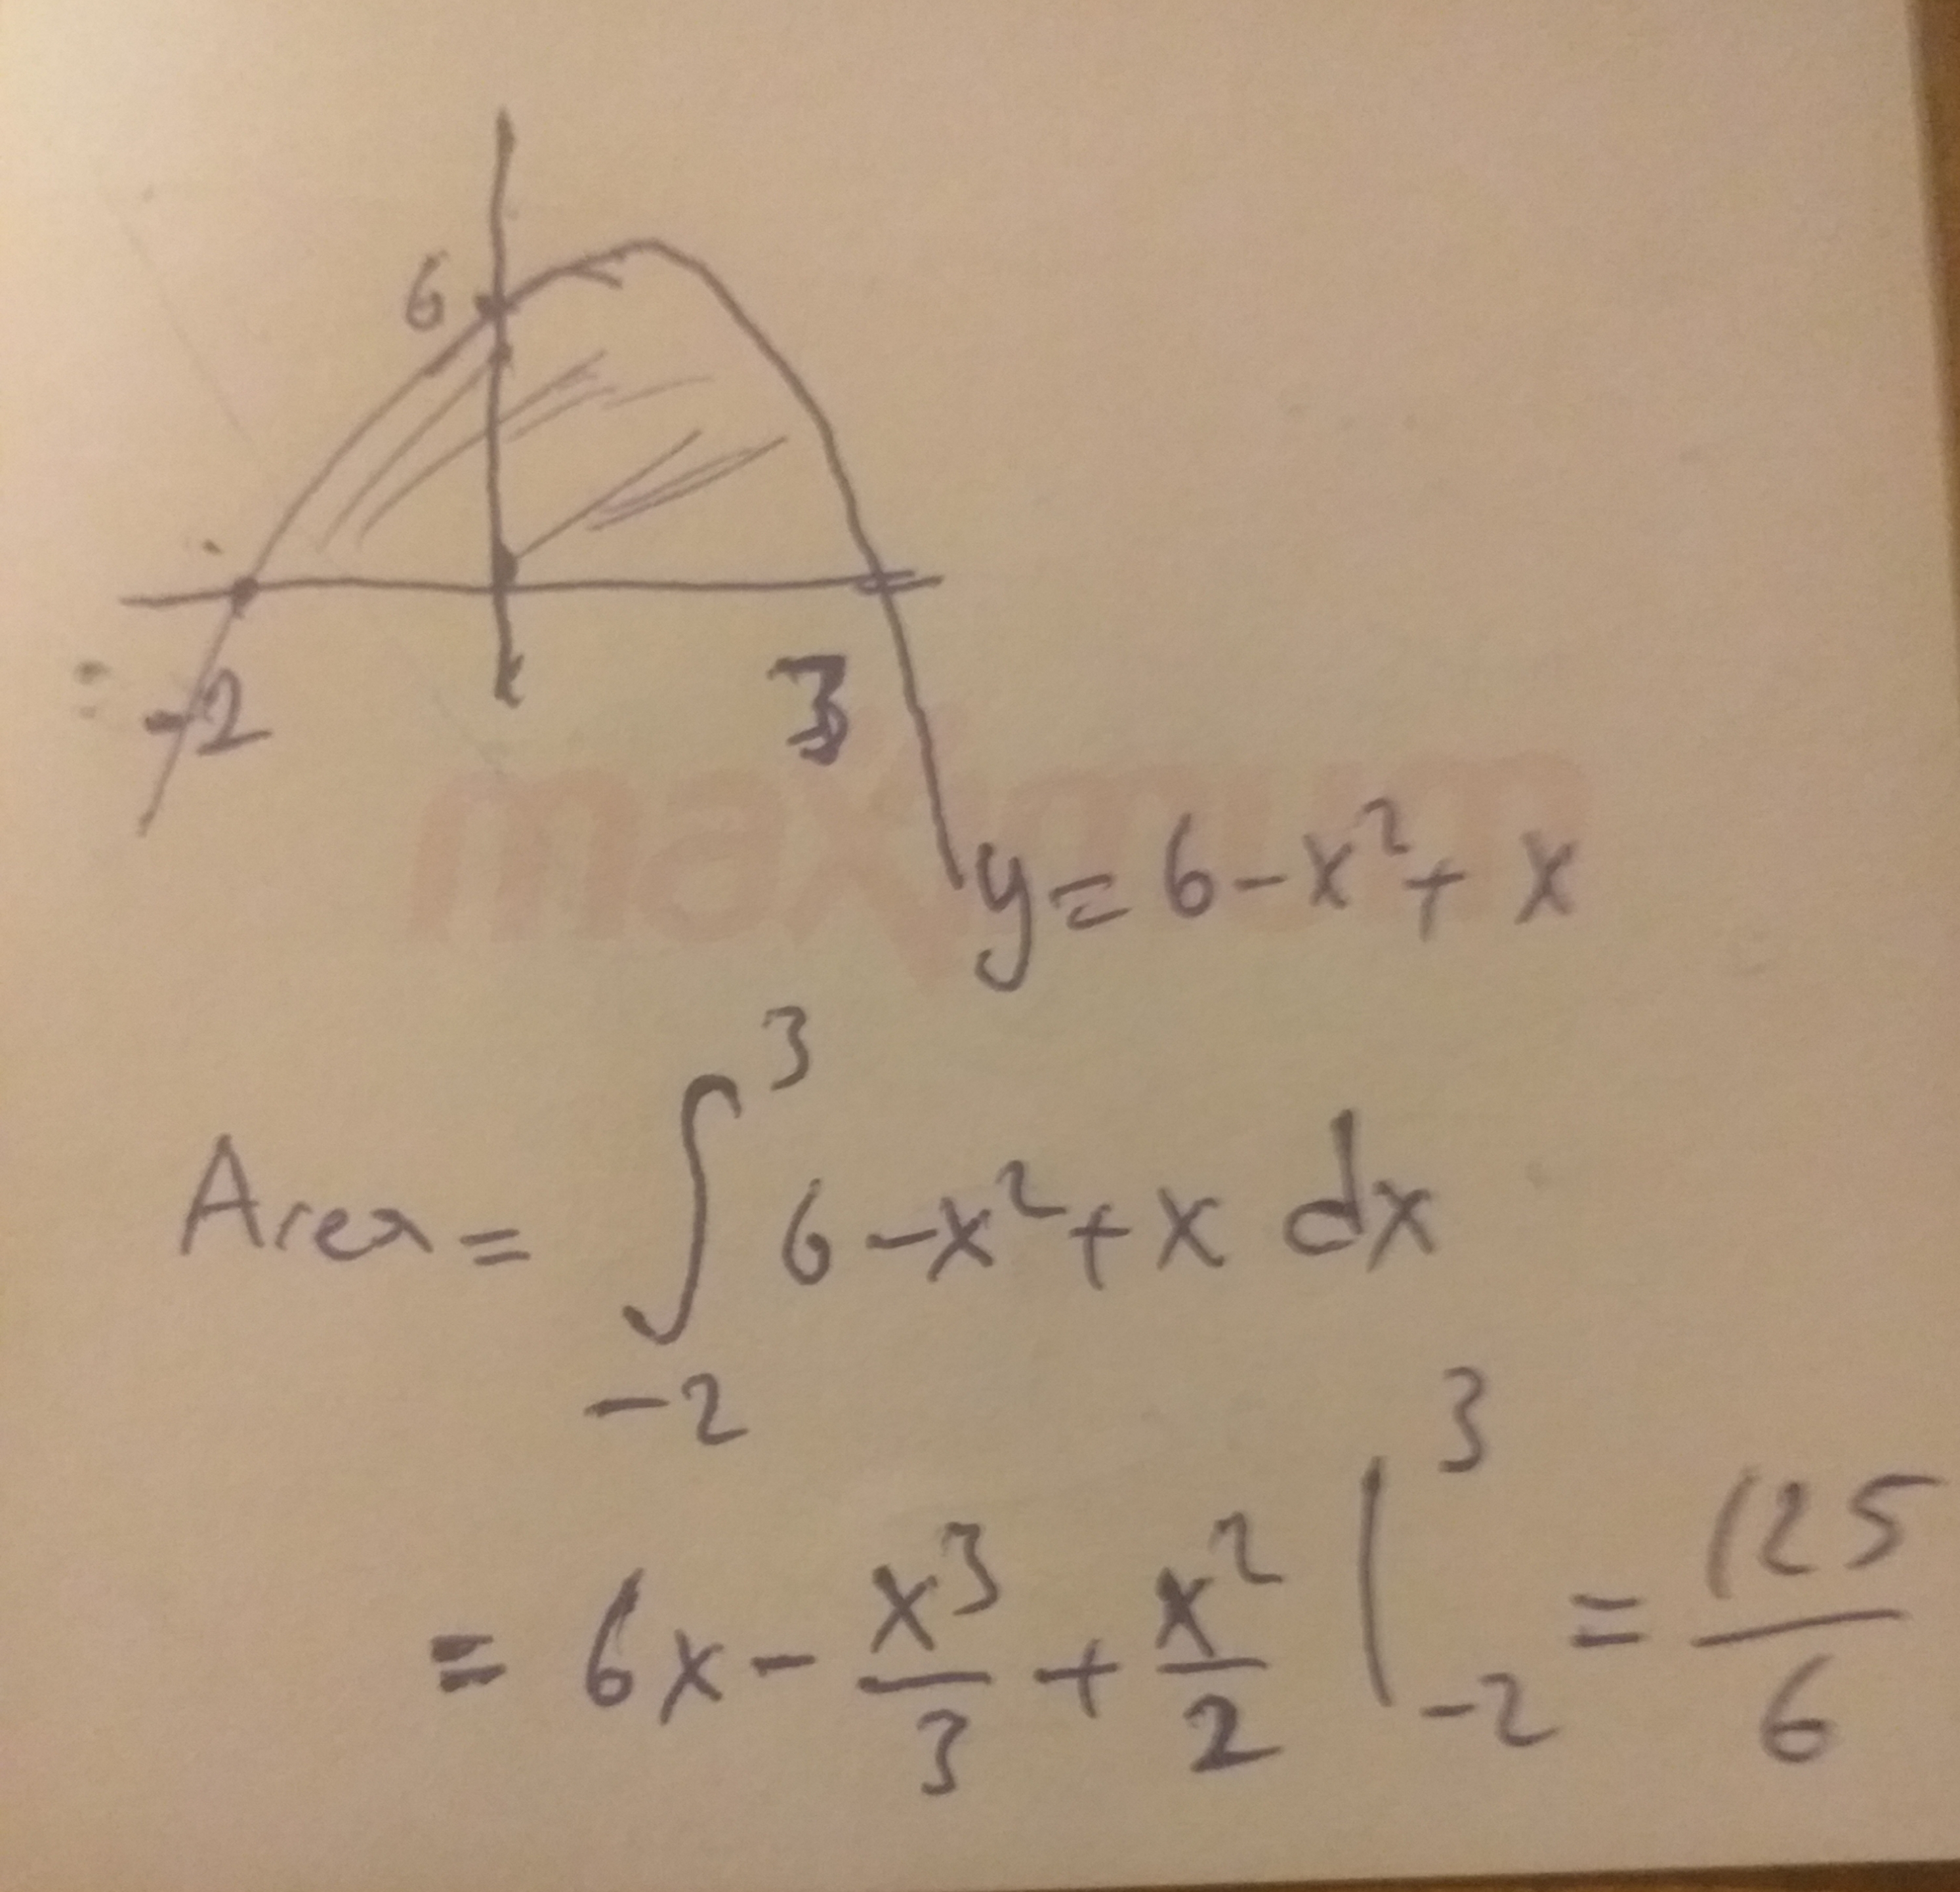 6
-2 3
maximum
y = 6 - x² + x
Area = ∫₋₂³ 6 - x² + x dx
= 6x - x³/3 + x²/2 |₋₂³ = 125/6